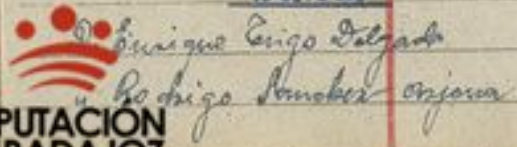 D. Enrique Trigo Delgado
" Rodrigo Sanchez Arjona
PUTACIÓN
BADAJOZ